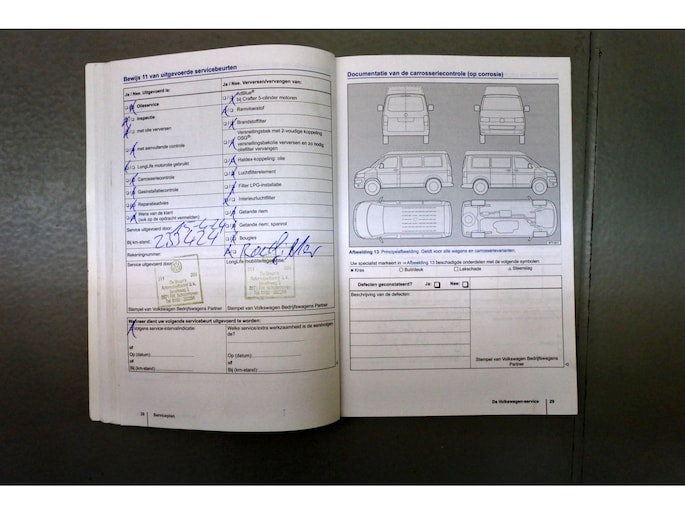 Bewijs 11 van uitgevoerde servicebeurten
Ja / Nee. Uitgevoerd is:
Olieservice
Inspectie
met olie verversen
met aanvullende controle
LongLife motorolie gebruikt
Carrosseriecontrole
Gasinstallatiecontrole
Reparatieadvies
Wens van de klant
(ook op de opdracht vermelden)
Service uitgevoerd door:
Bij km-stand: 233424
Rekeningnummer:
Service uitgevoerd door:
Stempel van Volkswagen Bedrijfswagens Partner
Ja / Nee. Verversen/vervangen van:
AdBlue®
bij Crafter 5-cilinder motoren
Remvloeistof
Brandstoffilter
Versnellingsbak met 2-voudige koppeling
DSG®:
versnellingsbakolie verversen en zo-nodig
oliefilter vervangen
Haldex-koppeling: olie
Luchtfilterelement
Filter LPG-installatie
Interieurluchtfilter
Getande riem
Getande riem: spanrol
Bougies
Stempel van Volkswagen Bedrijfswagens Partner
Wanneer dient uw volgende servicebeurt uitgevoerd te worden:
Volgens service-intervalindicatie
of
Op (datum)
of
Bij (km-stand)
Welke service/extra werkzaamheid is de eerstvolgen-
de?
of
Op (datum)
of
Bij (km-stand)
28 Serviceplan
Documentatie van de carrosseriecontrole (op corrosie)
Afbeelding 13 Principeafbeelding. Geldt voor alle wagens en carrosserievarianten.
Uw specialist markeert in ⇒ Afbeelding 13 beschadigde onderdelen met de volgende symbolen:
● Kras ○ Buil/deuk □ Lakschade △ Steenslag
Defecten geconstateerd? Ja: Nee:
Beschrijving van de defecten:
Stempel van Volkswagen Bedrijfswagens
Partner
De Volkswagen-service 29